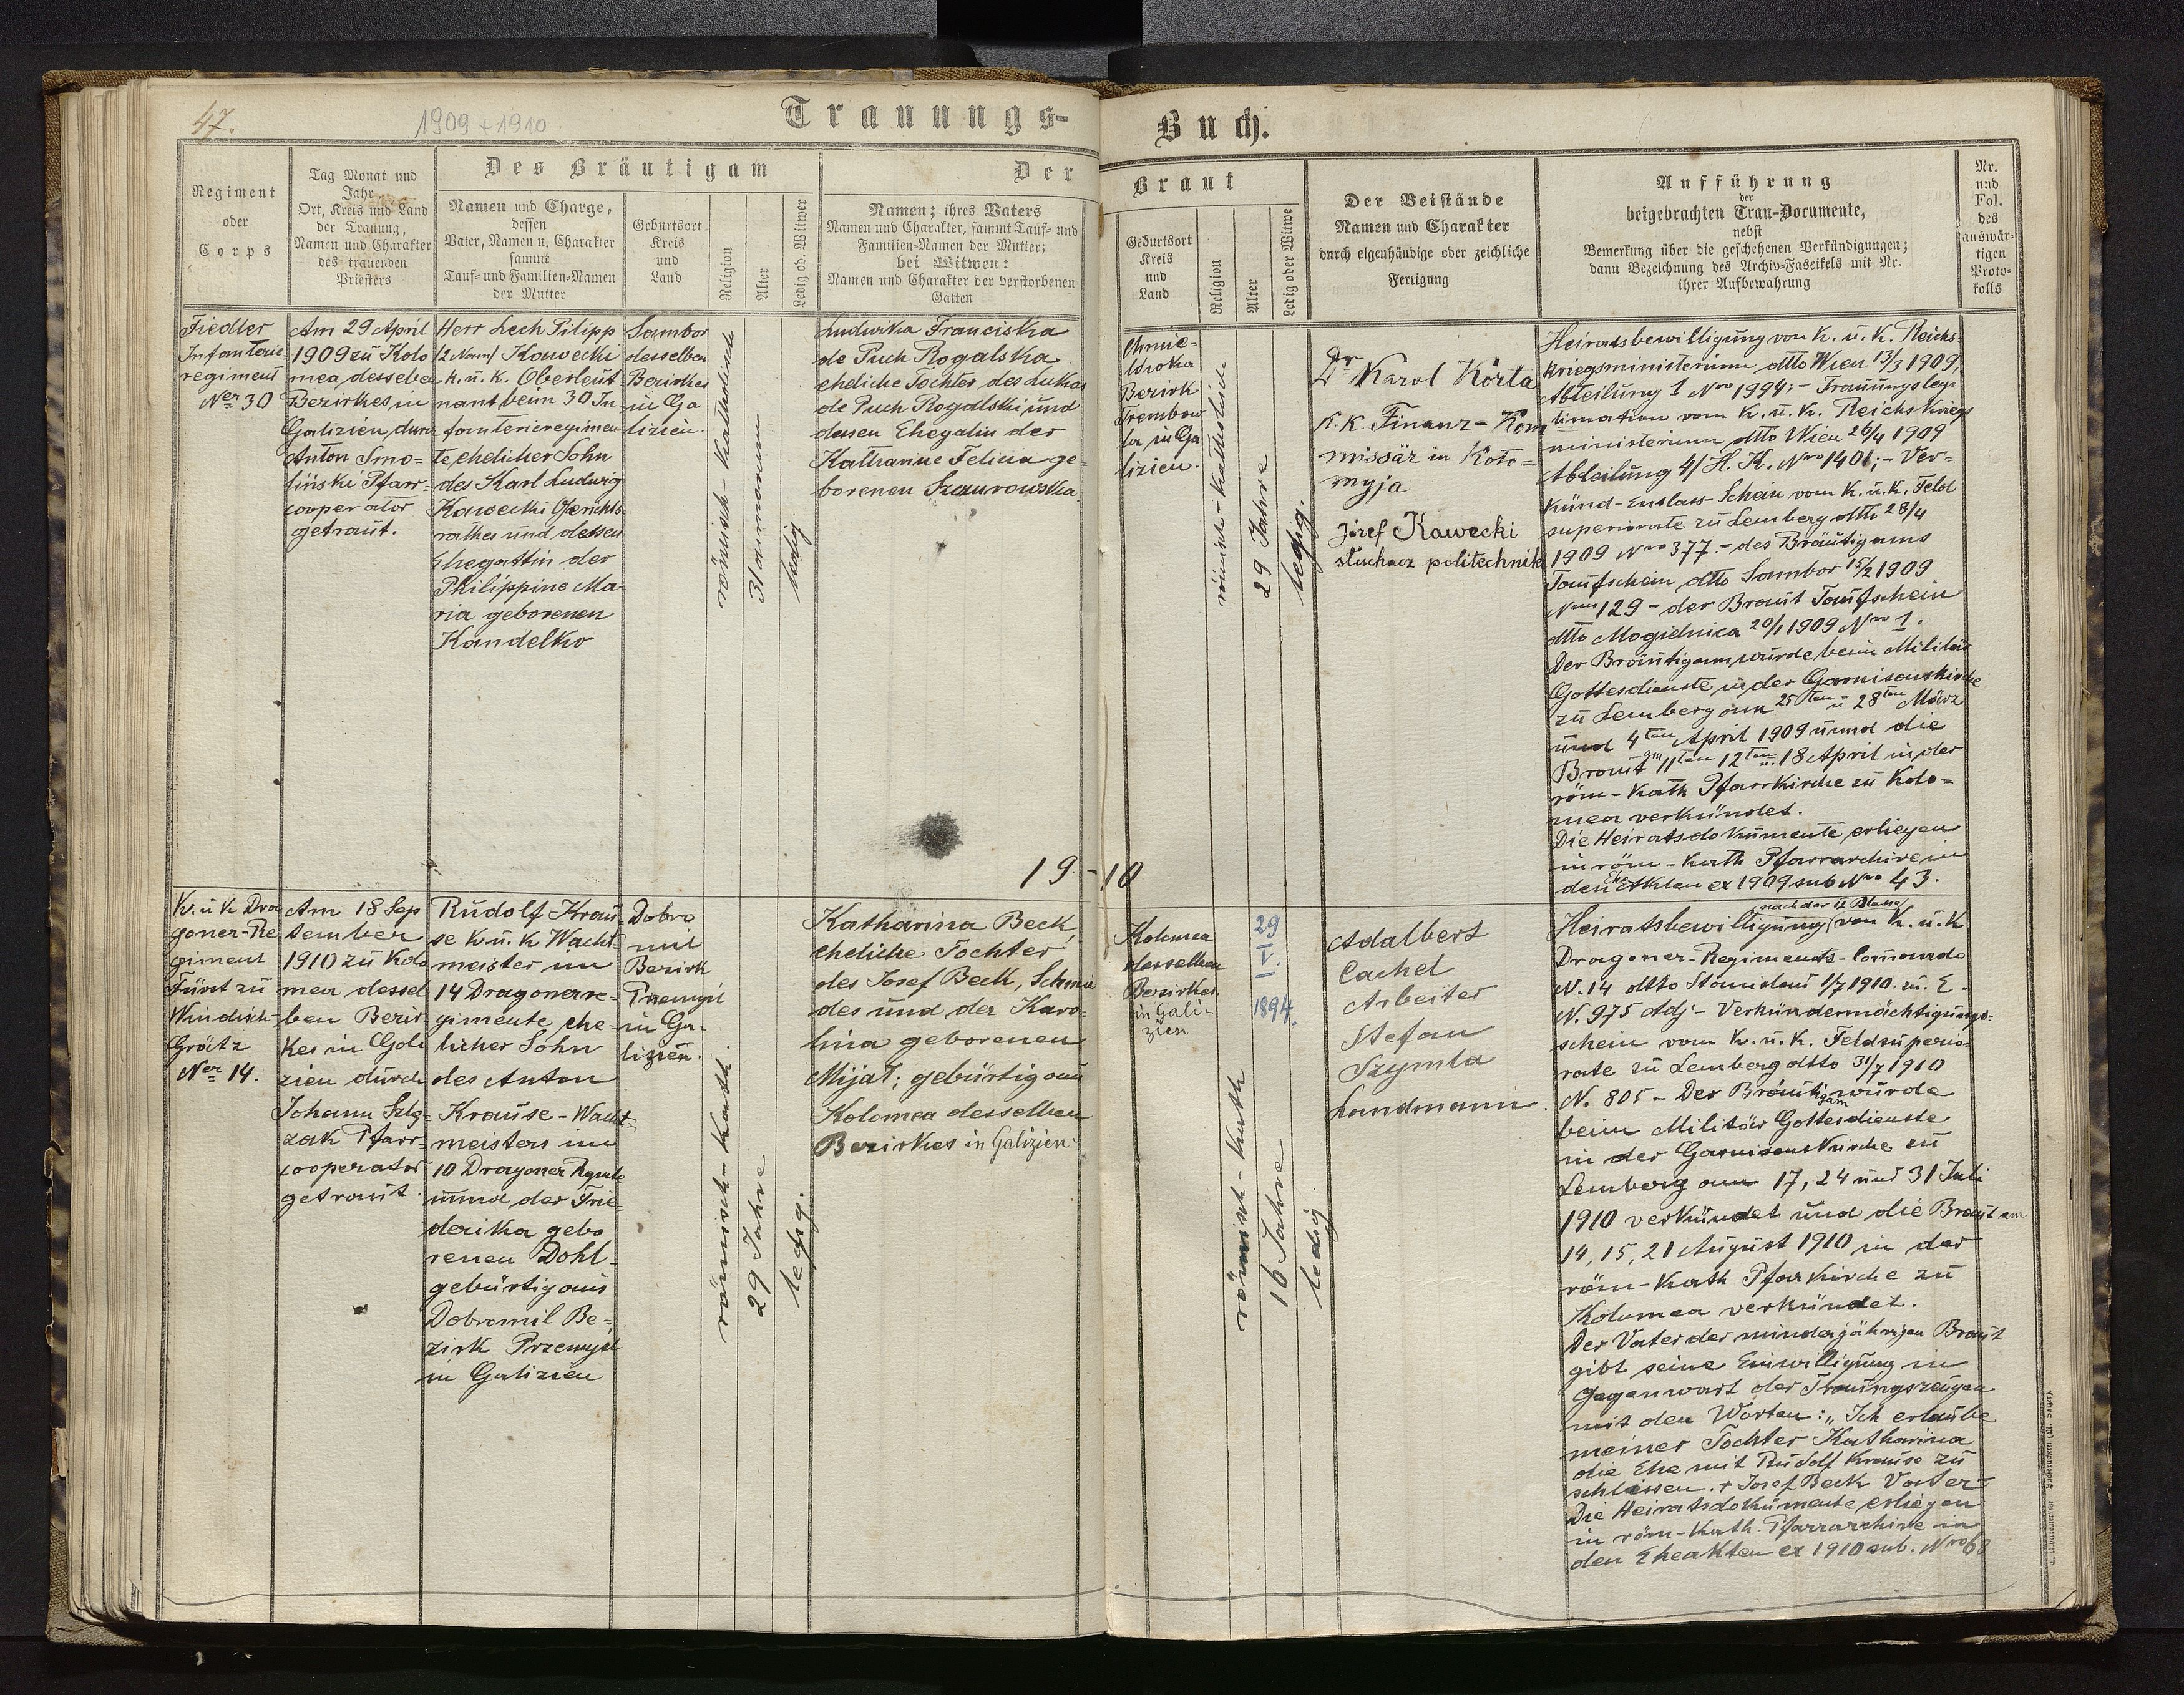 47.
1909 + 1910
Trauungs-
Buch.
Regiment
oder
Corps
Tag Monat und
Jahr
Ort, Kreis und Land
der Trauung,
Namen und Charakter
des trauenden
Priesters
Des Bräutigam
Namen und Charge,
dessen
Vater, Namen u. Charakter
sammt
Tauf- und Familien-Namen
der Mutter
Geburtsort
Kreis
und
Land
Religion
Alter
Ledig od. Witwer
Der
Namen; ihres Vaters
Namen und Charakter, sammt Tauf- und
Familien-Namen der Mutter;
bei Witwen:
Namen und Charakter der verstorbenen
Gatten
Braut
Geburtsort
Kreis
und
Land
Religion
Alter
Ledig oder Witwe
Der Beistände
Namen und Charakter
durch eigenhändige oder zeichliche
Fertigung
Aufführung
der
beigebrachten Trau-Documente,
nebst
Bemerkung über die geschehenen Verkündigungen;
dann Bezeichnung des Archiv-Fascikels mit Nr.
ihrer Aufbewahrung
Nr.
und
Fol.
des
auswär-
tigen
Proto-
kolls
Fiedler
Infanterie-
regiment
Ner 30
Am 29 April
1909 zu Kolo
mea desselben
Bezirkes in
Galizien durch
Anton Smo-
liński Pfarr-
cooperator
getraut.
Herr Lech Pilipp
(2 Nam) Kawecki
k. u. k. Oberleut-
nant beim 30 In-
fanterieregimen-
te, ehelicher Sohn
des Karl Ludwig
Kawecki Gerichts-
rathes und dessen
Ehegattin der
Philippine Ma-
ria geborenen
Kandelko
Sambor
desselben
Bezirkes
in Ga
lizien.
römisch-katholisch
31 annorum
ledig
Ludwika Franciska
de Puch Rogalska
eheliche Tochter des Lukas
de Puch Rogalski und
dessen Ehegatin der
Katharine Felicia ge-
borenen Szaurowska
Chmie-
lówka
Bezirk
Trembow
la in Ga
lizien.
römisch-katholisch
29 Jahre
ledig.
Dr Karol Körta
k. k. Finanz-Kom
missär in Koło-
myja
Józef Kawecki
słuchacz politechniki
Heiratsbewilligung von k. u. k. Reichs-
kriegsministerium dtto Wien 13/3 1909,
Abteilung 1 Nro 1994; - Trauungslegi
timation vom k. u. k. Reichskriegs
ministerium dtto Wien 26/4 1909
Abteilung 4/H. K. Nro 1401; - Ver-
künd-Entlass-Schein vom k. u. k. Feld
superiorate zu Lemberg dtto 28/4
1909 Nro 377. - des Bräutigams
Taufschein dtto Sambor 15/2 1909
Nrus 129 - der Braut Taufschein
dtto Mogielnica 20/1 1909 Nro 1.
Der Bräutigam wurde beim Militär
Gottesdienste in der Garnisonskirche
zu Lemberg am 25ten u 28ten März
und 4ten April 1909 unnd die
Braut am 11ten 12ten u. 18 April in der
röm-kath Pfarrkirche zu Kolo-
mea verkündet.
Die Heiratsdokumente erliegen
in röm-kath Pfarrarchive in
den Ehe Akten ex 1909 sub Nro 43.
19-10
K. u k Dra
goner-Re
giment
Fürst zu
Windisch-
Grätz
Ner 14.
Am 18 Sep
tember
1910 zu Kolo
mea dessel
ben Bezir
kes in Gali
zien durch
Johann Szlę-
zak Pfarr-
cooperator
getraut.
Rudolf Krau-
se k. u. k Wacht-
meister im
14 Dragonerre-
gimente, ehe-
licher Sohn
des Anton
Krause - Wacht-
meisters im
10 Dragoner Rgmte
unnd der Frie-
derika gebo
renen Dohl-
gebürtig aus
Dobromil Be-
zirk Przemyśl
in Galizien
Dobro
mil
Bezirk
Przemyśl
in Ga-
lizien.
römisch-kath.
29 Jahre
ledig.
Katharina Beck,
eheliche Tochter
des Josef Beck, Schmie
des und der Karo-
lina geborenen
Mijał; gebürtig aus
Kolomea desselben
Bezirkes in Galizien
Kolomea
desselben
Bezirkes
in Gali-
zien
römisch-kath
29
V.
1894.
16 Jahre
ledig
Adalbert
Cachel
Arbeiter
Stefan
Szymla
Landmann.
Heiratsbewilligung (nach der II Klasse) von k. u. k
Dragoner-Regiments-Commando
N. 14 dtto Stanislau 1/7 1910. zu. E.
N. 975 Adj - Verkündermächtigungs-
schein vom k. u. k. Feldsuperio-
rate zu Lemberg dtto 31/7 1910
N. 805 - Der Bräutigam wurde
beim Militär Gottesdienste
in der Garnisonskirche zu
Lemberg am 17, 24 und 31 Juli
1910 verkündet und die Braut am
14, 15, 21 August 1910 in der
röm-kath Pfarkirche zu
Kolomea verkündet.
Der Vater der minderjährigen Braut
gibt seine Einwilligung in
Gegenwart der Trauungszeugen
mit den Worten: „Ich erlaube
meiner Tochter Katharina
die Ehe mit Rudolf Krause zu
schliessen. + Josef Beck Vater"
Die Heiratsdokumente erliegen
in röm-kath. Pfarrarchive in
den Eheakten ex 1910 sub. Nro 68